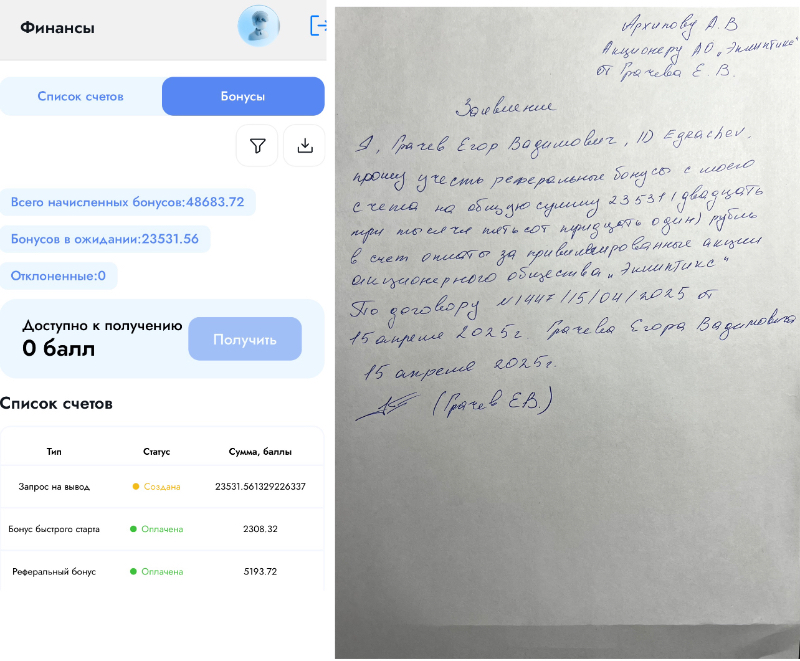 Финансы
Список счетов
Бонусы
Всего начисленных бонусов:48683.72
Бонусов в ожидании:23531.56
Отклоненные:0
Доступно к получению
0 балл
Получить
Список счетов
Тип Статус Сумма, баллы
Запрос на вывод Создана 23531.561329226337
Бонус быстрого старта Оплачена 2308.32
Реферальный бонус Оплачена 5193.72
Архипову А.В
Акционеру АО „Эклиптикс"
от Грачева Е.В.
Заявление
Я, Грачев Егор Вадимович, ID Egrachev,
прошу учесть реферальные бонусы с моего
счета на общую сумму 23531 (двадцать
три тысячи пятьсот тридцать один) рубль
в счет оплаты за привилегированные акции
акционерного общества „Эклиптикс"
По договору №1447/15/04/2025 от
15 апреля 2025г. Грачева Егора Вадимовича
15 апреля 2025г.
(Грачев Е.В.)